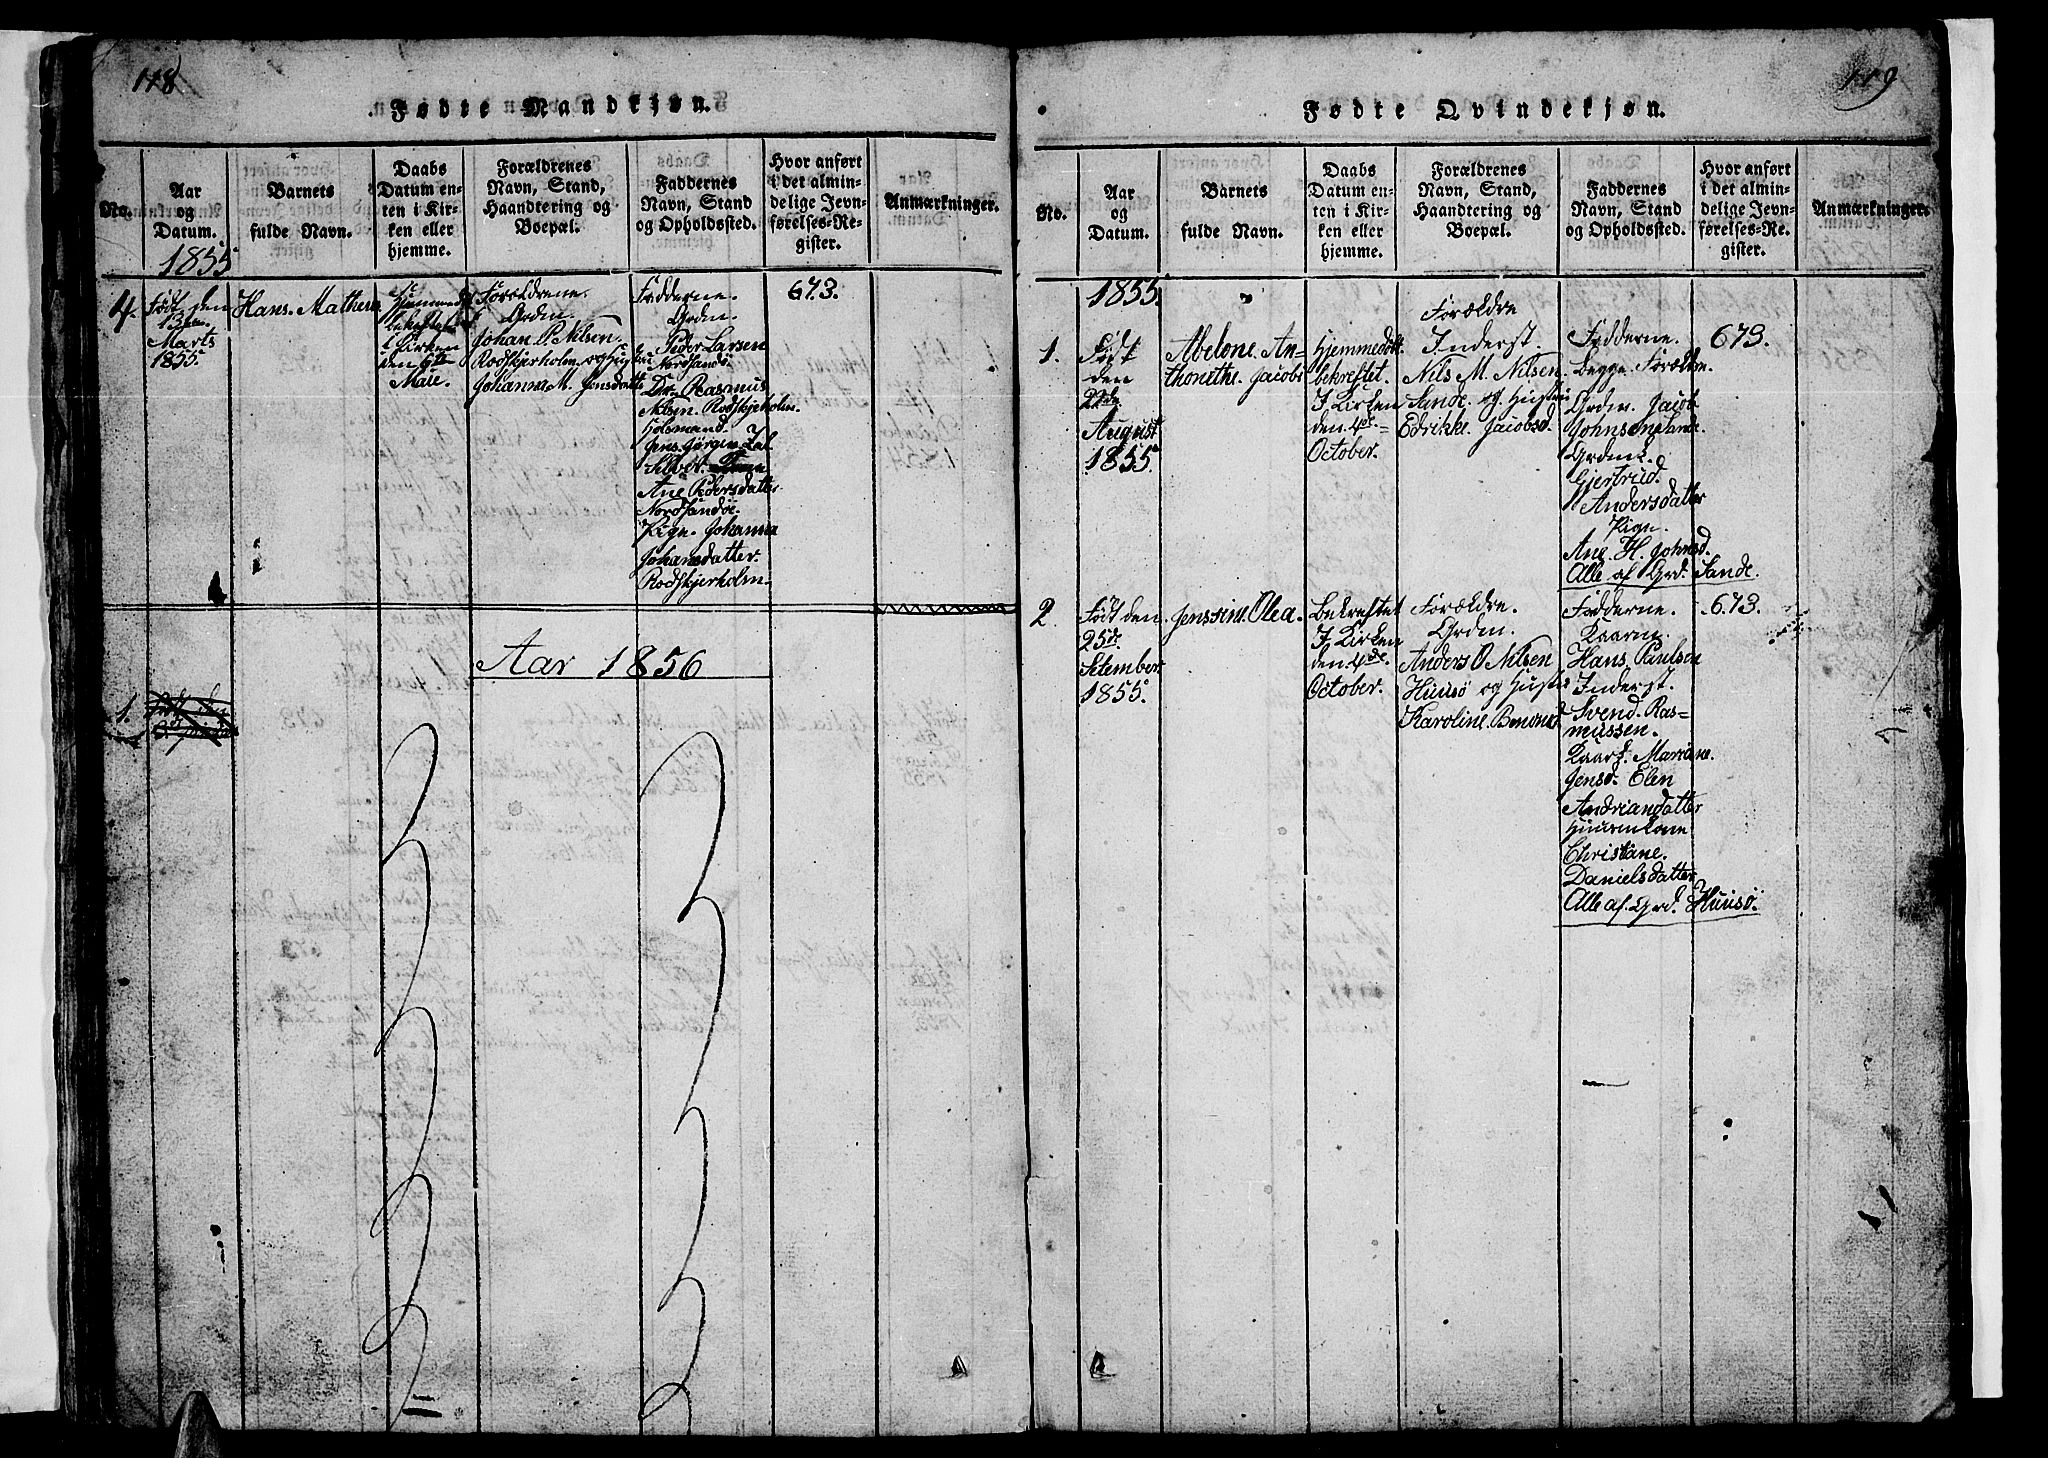 118
Fødte Mandkjøn.
No.
Aar
og
Datum.
Barnets
fulde Navn.
Daabs
Datum en-
ten i Kir-
ken eller
hjemme.
Forældrenes
Navn, Stand,
Haandtering og
Boepæl.
Faddernes
Navn, Stand
og Opholdssted.
Hvor anført
i det almin-
delige Jevn-
førelses-Re-
gister.
Anmærkninger.
1855
4.
Født den
13
Marts
1855.
Hans. Mathem
bekræftet
i Kirken
den 6te
Maie.
Forældrene.
Grdm.
Johan P. Nilsen.
Rodskjerholm og Hustru
Johanna M. Jensdatte
Fadderne.
Grdm.
Peder Larsen
Nordsandø.
Do. Rasmus
Nilsen. Rodskjerholm.
Holsmand.
Jens Jørgen
Ane Pedersdatter
Nordsandøe.
Pige. Johanna
Johansdatter.
Rodskjerholm.
673.
Aar 1856
1.
119
Fødte Qvindekjøn.
No.
Aar
og
Datum.
Barnets
fulde Navn.
Daabs
Datum en-
ten i Kir-
ken eller
hjemme.
Forældrenes
Navn, Stand,
Haandtering og
Boepæl.
Faddernes
Navn, Stand
og Opholdssted.
Hvor anført
i det almin-
delige Jevn-
førelses-Re-
gister.
Anmærkninger.
1855.
1.
Født
den
22de
August
1855.
Abelone. An-
thonethe. Jacobi
Hjemmedøbt
bekreftet.
I Kirken
den 4de
October.
Forældre
Inderst.
Nils M. Nilsen.
Sande. og Hustru
Edrikke. Jacobsd.
Fadderne.
Begge Forældre.
Grdm. Jacob
Johnsen Sande.
Grdmk.
Gjertrud.
Andersdatter
Pige.
Ane H. Johnsd.
Alle af Grd. Sande.
673.
2.
Født den
25de
Setember
1855.
Jenssine. Olea.
Bekreftet
I Kirken
den 4de
October.
Forældre.
Grdm.
Anders O Nilsen
Huusø og Hustru
Karoline. Benons
Fadderne.
Kaarm.
Hans Paulsen
Inderst.
Svend. Ras-
mussen.
Kaark. Mariane.
Jensd. Elen
Andriandatter
Huusmkone
Christiane.
Danielsdatter
Alle af. Grd. Huusø.
673.